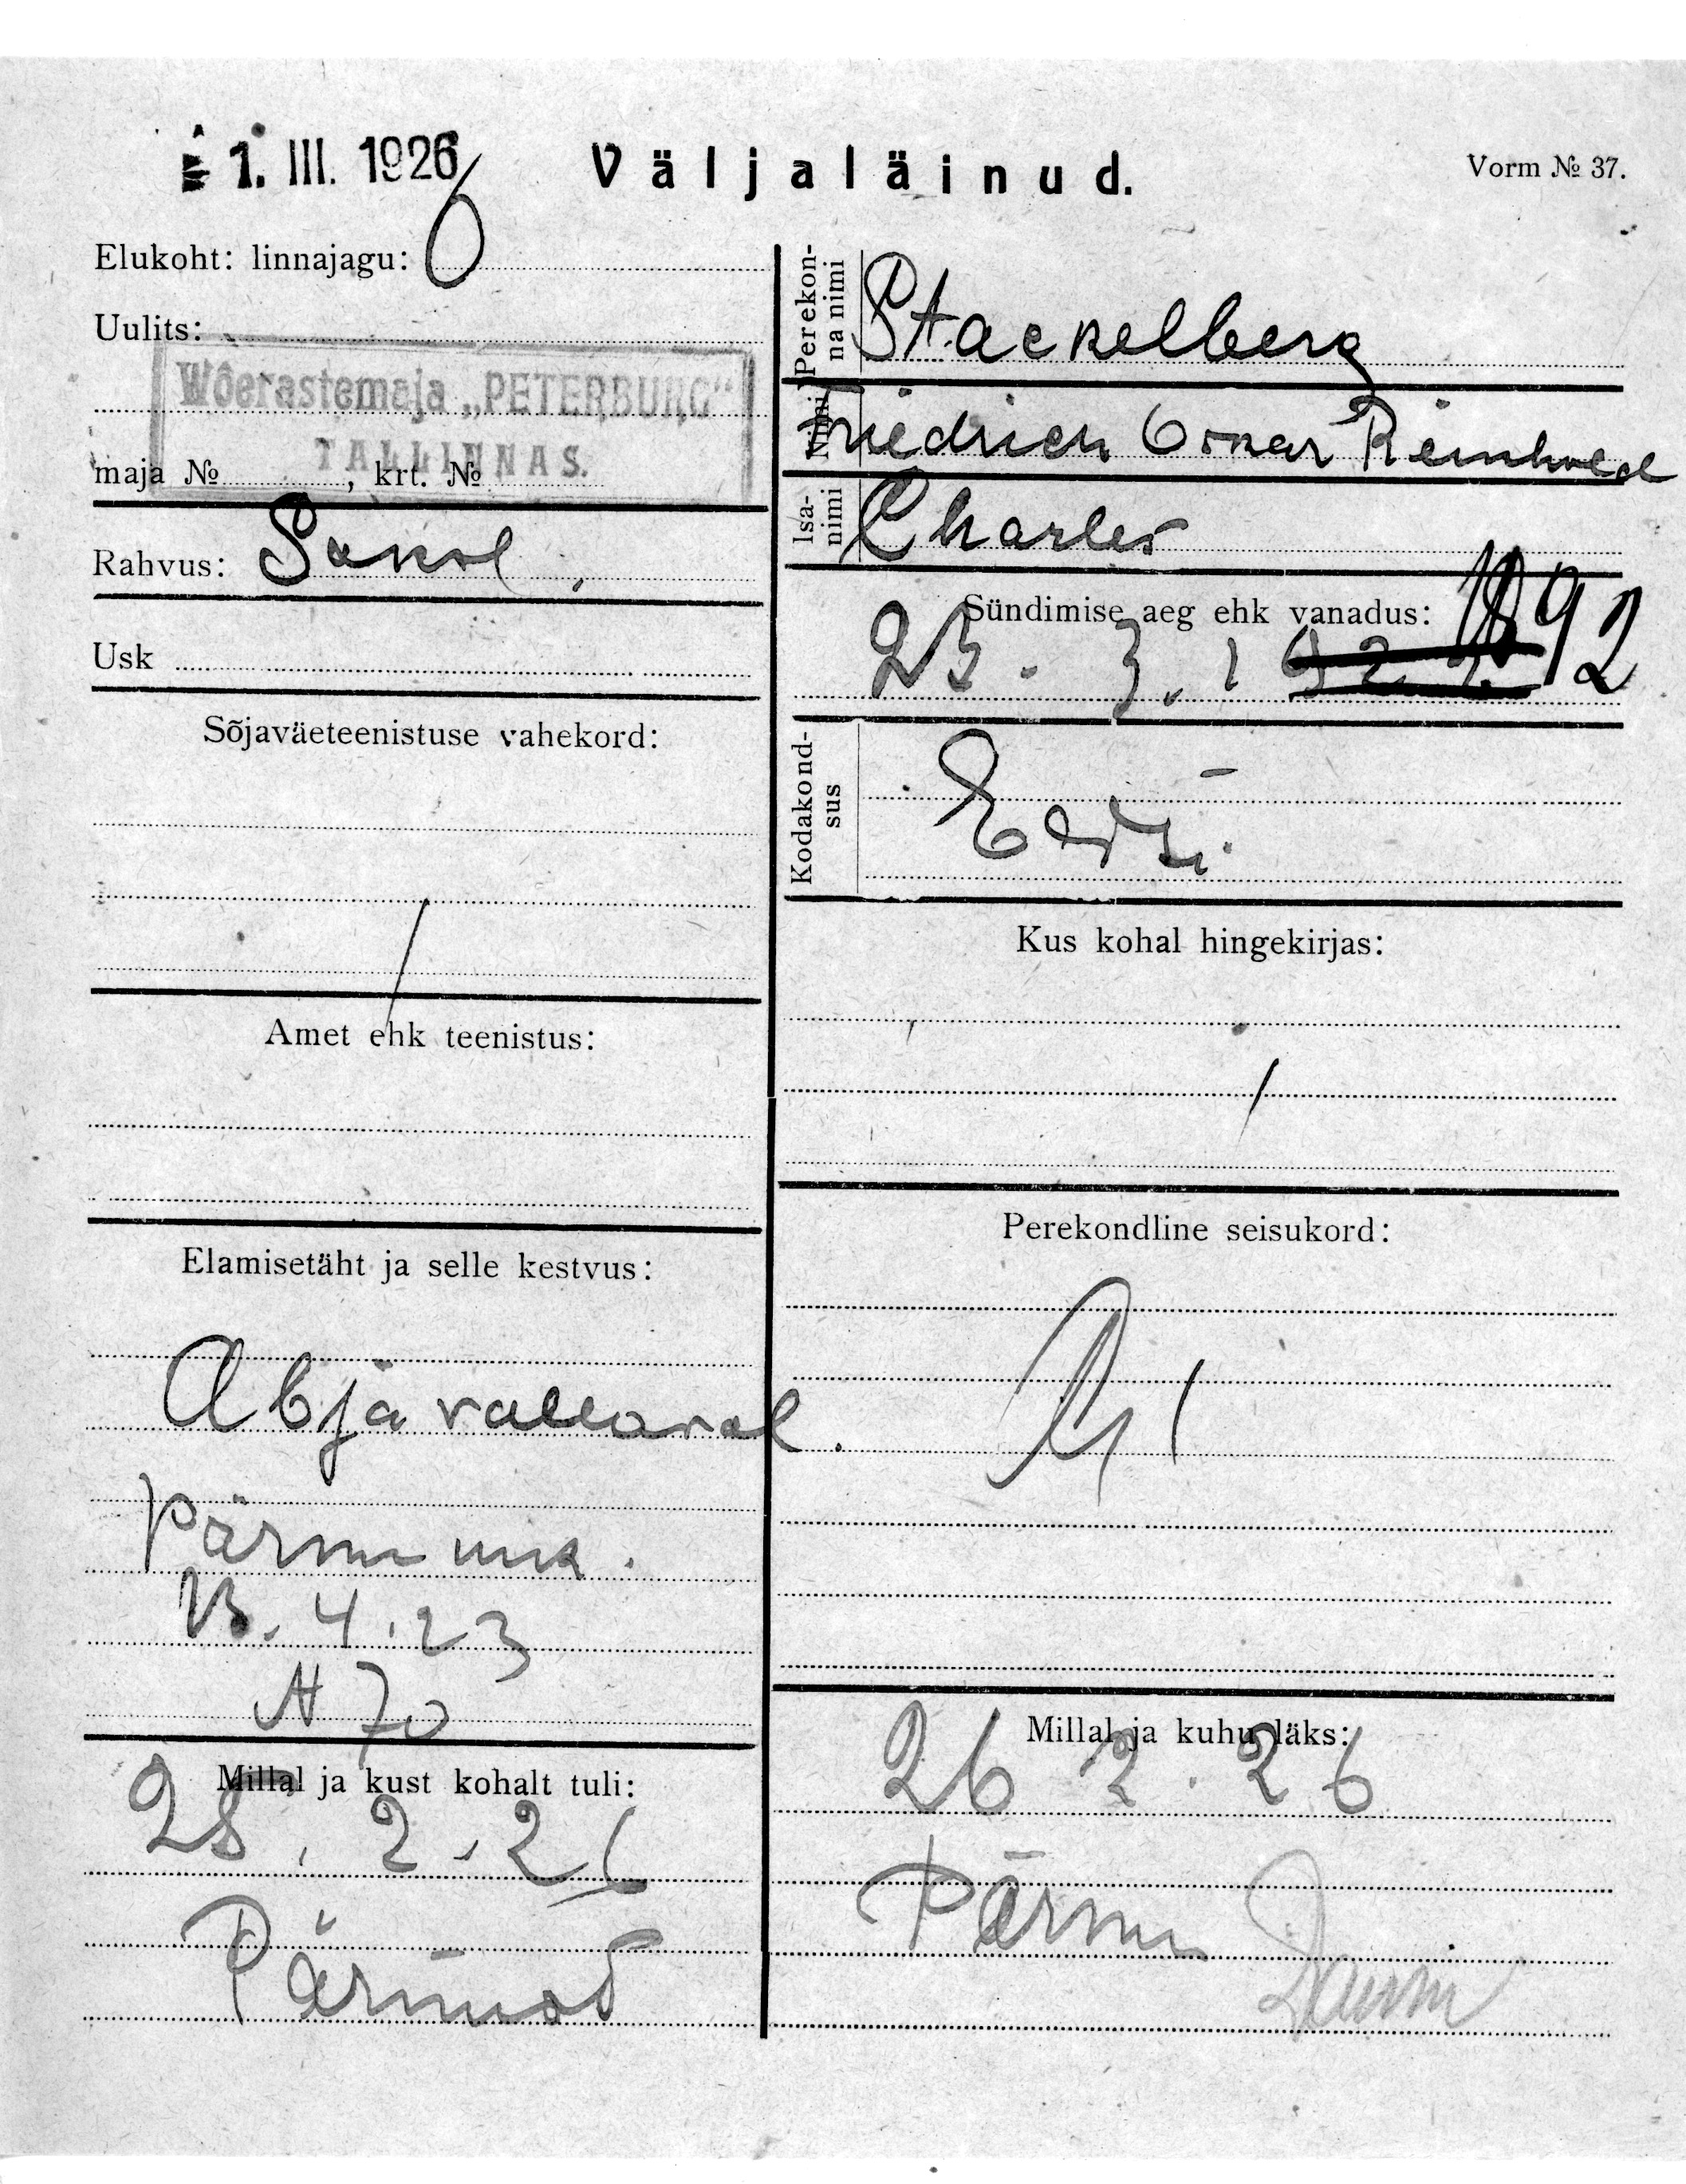 1. III. 1926
Väljaläinud.
Vorm № 37.
Elukoht: linnajagu: 6
Uulits:
Wõerastemaja „PETERBURG“
TALLINNAS.
maja № , krt. №
Rahvus: Saksl.
Usk
Sõjaväeteenistuse vahekord:
Amet ehk teenistus:
Elamisetäht ja selle kestvus:
Abja vallaval.
Pärnu mk.
13.4.23
N 70
Millal ja kust kohalt tuli:
25.2.26
Pärnust
Perekonna nimi
Stackelberg
Nimi
Friedrich Oskar Reinhold
Isanimi
Charles
Sündimise aeg ehk vanadus: 1892
23.3.1
Kodakondsus
Eesti
Kus kohal hingekirjas:
Perekondline seisukord:
Millal ja kuhu läks:
26 2.26
Pärnu